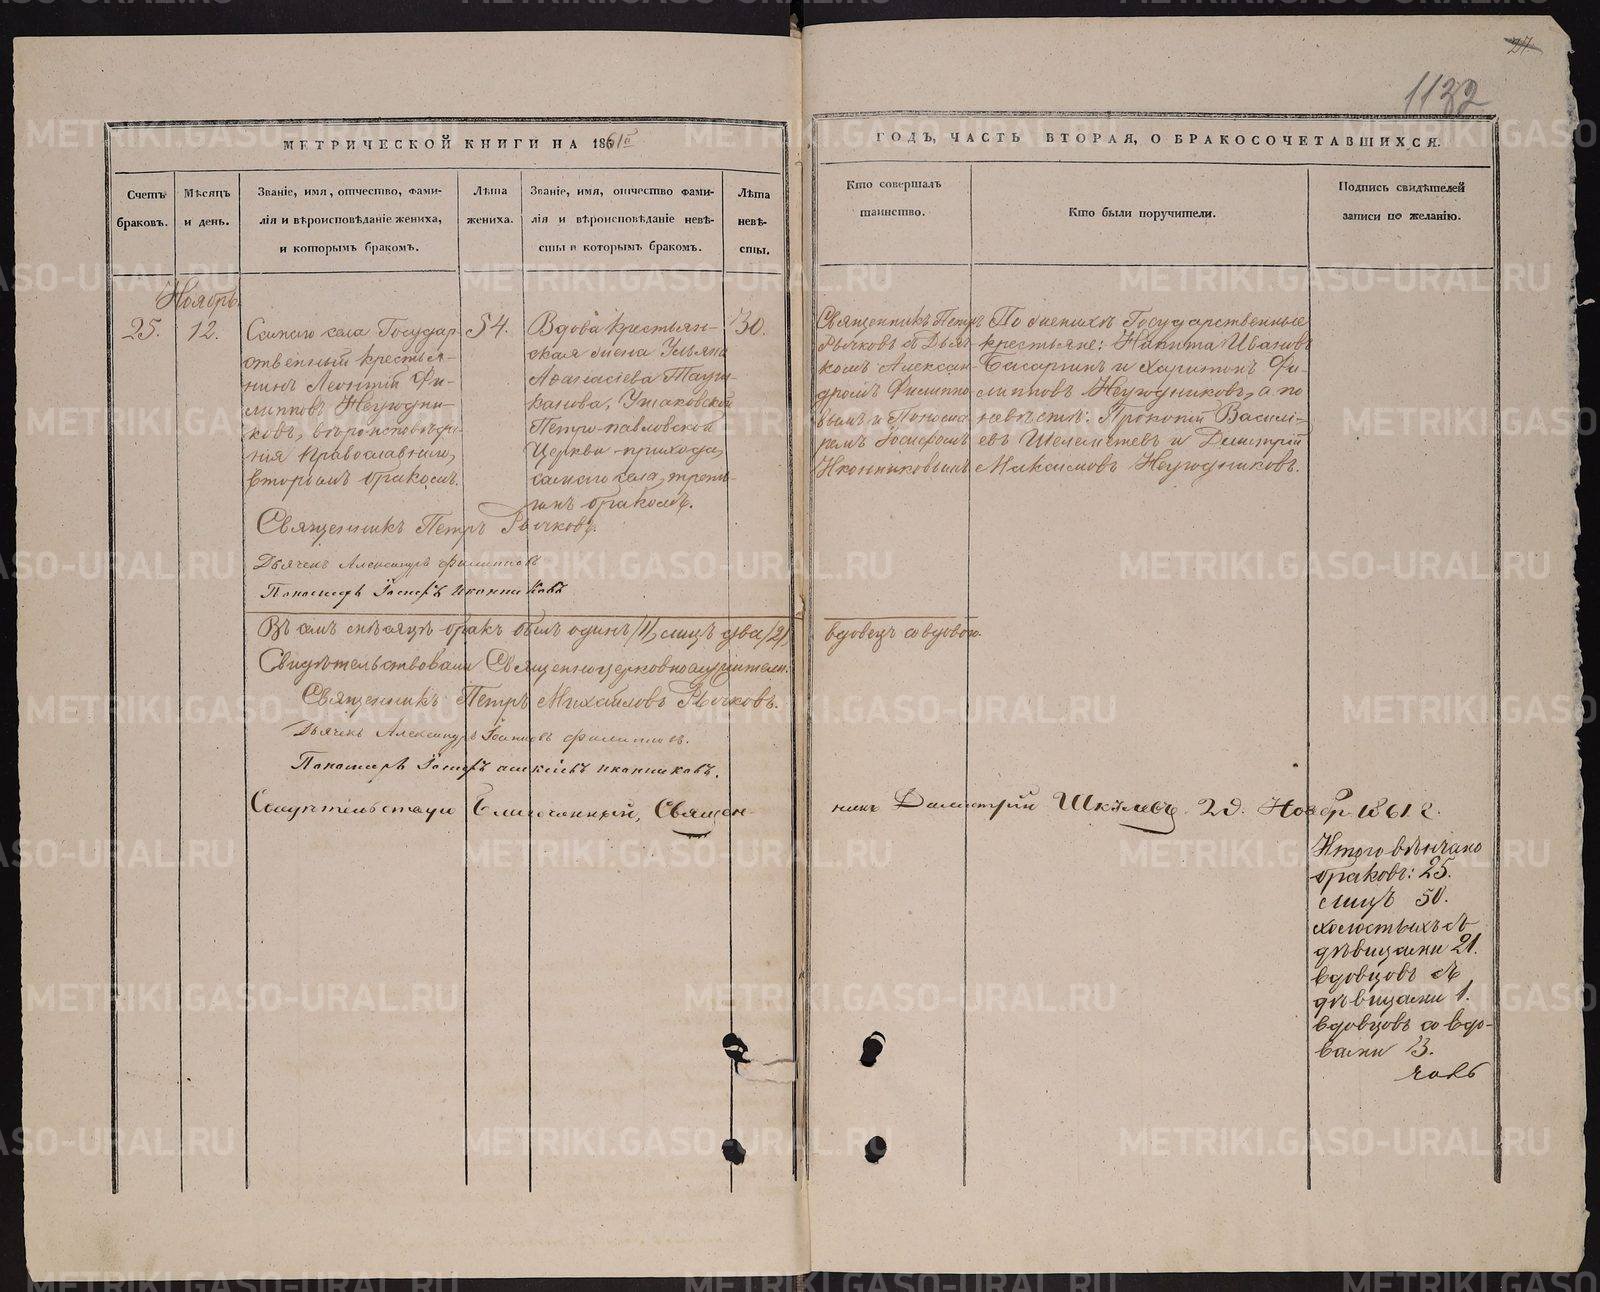 27.
1132
МЕТРИЧЕСКОЙ КНИГИ НА 1861й
ГОДЪ, ЧАСТЬ ВТОРАЯ, О БРАКОСОЧЕТАВШИХСЯ.
Счетъ
браковъ.
Мѣсяцъ
и день.
Званіе, имя, отчество, фами-
лія и вѣроисповѣданіе жениха,
и которымъ бракомъ.
Лѣта
жениха.
Званіе, имя, отчество фами-
лія и вѣроисповѣданіе невѣ-
сты и которымъ бракомъ.
Лѣта
невѣ-
сты.
Кто совершалъ
таинство.
Кто были поручители.
Подпись свидѣтелей
записи по желанію.
Ноябрь.
25.
12.
Самаго села Государ-
ственный крестья-
нинъ Леонтій Фи-
липповъ Неугодни-
ковъ, вѣроисповѣда-
нія православнаго,
вторымъ бракомъ.
54.
Вдова крестьян-
ская жена Ульяна
Аѳанасіева
Петро-павловской
Церкви прихода,
самаго села, треть-
имъ бракомъ.
30.
Священникъ Петръ
Рычковъ съ Дьяч-
комъ Алексан-
дромъ Филиппо-
вымъ и Понома-
ремъ Іосифомъ
Иконниковымъ
По женихѣ Государственные
крестьяне: Никита Ивановъ
Басаргинъ и Харитонъ Фи-
липповъ Неугодниковъ, а по
невѣстѣ: Прокопій Василь-
евъ Шелементевъ и Димитрій
Максимовъ Неугодниковъ.
Священникъ Петръ Рычковъ.
Дьячекъ Александръ Филипповъ
Пономарь Іосифъ Иконниковъ
Въ семъ мѣсяцѣ бракъ былъ одинъ /1/, лицъ два /2/,
вдовецъ со вдовою.
Свидѣтельствовали Священноцерковнослужители:
Священникъ Петръ Михайловъ Рычковъ.
Дьячекъ Александръ Іоанновъ Филипповъ.
Пономарь Іосифъ Алексѣевъ Иконниковъ.
Свидѣтельствую Благочинный, Священ-
никъ Димитрій Шкулевъ. 29. Ноябр. 1861 г.
Итого вѣнчано
браковъ: 25.
лицъ 50.
холостыхъ съ
дѣвицами 21.
вдовцовъ съ
дѣвицами 1.
вдовцовъ со вдо-
вами 3.